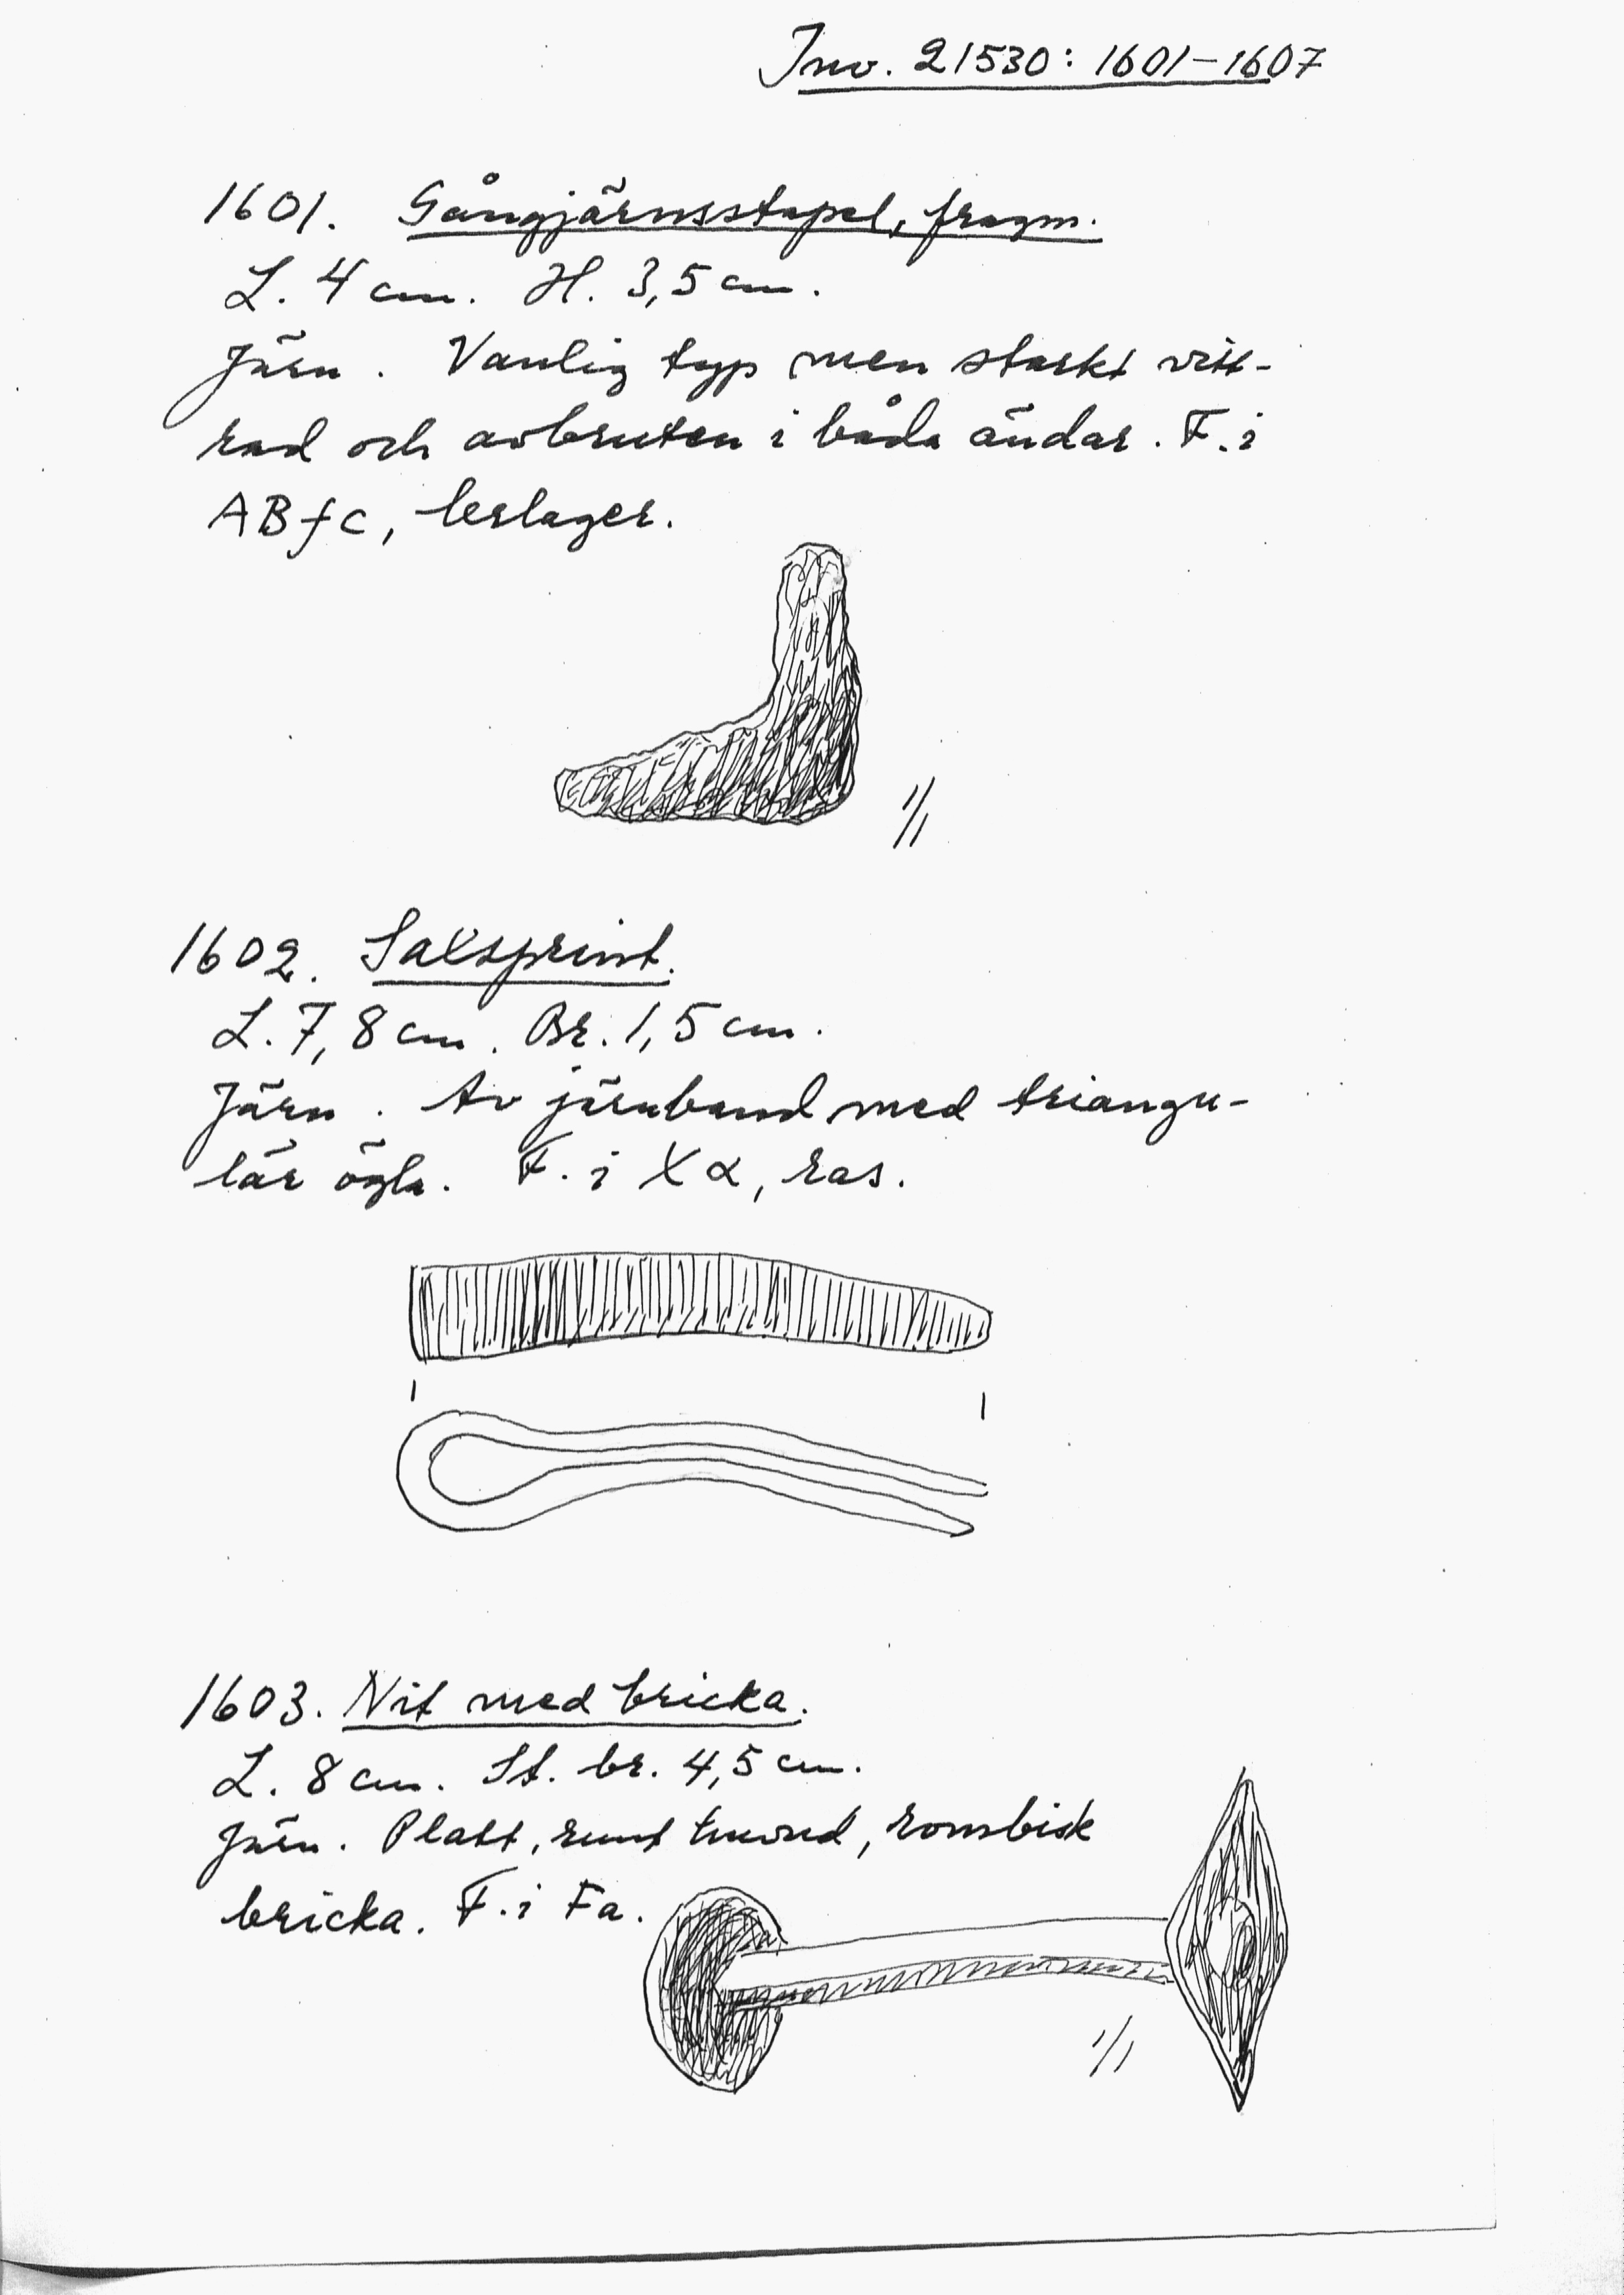 Inv. 21530: 1601-1607
1601. Gångjärnsstapel, fragm.
L. 4 cm. H. 3,5 cm.
Järn. Vanlig typ men starkt vitt-
rad och avbruten i båda ändar. F. i
ABfc, lerlager.
1/1
1602. Saxsprint.
L. 7,8 cm. Br. 1,5 cm.
Järn. Av järnband med triangu-
lär ögla. F. i X α, ras.
1603. Nit med bricka.
L. 8 cm. St. br. 4,5 cm.
Järn. Platt, runt huvud, rombisk
bricka. F. i Fa.
1/1